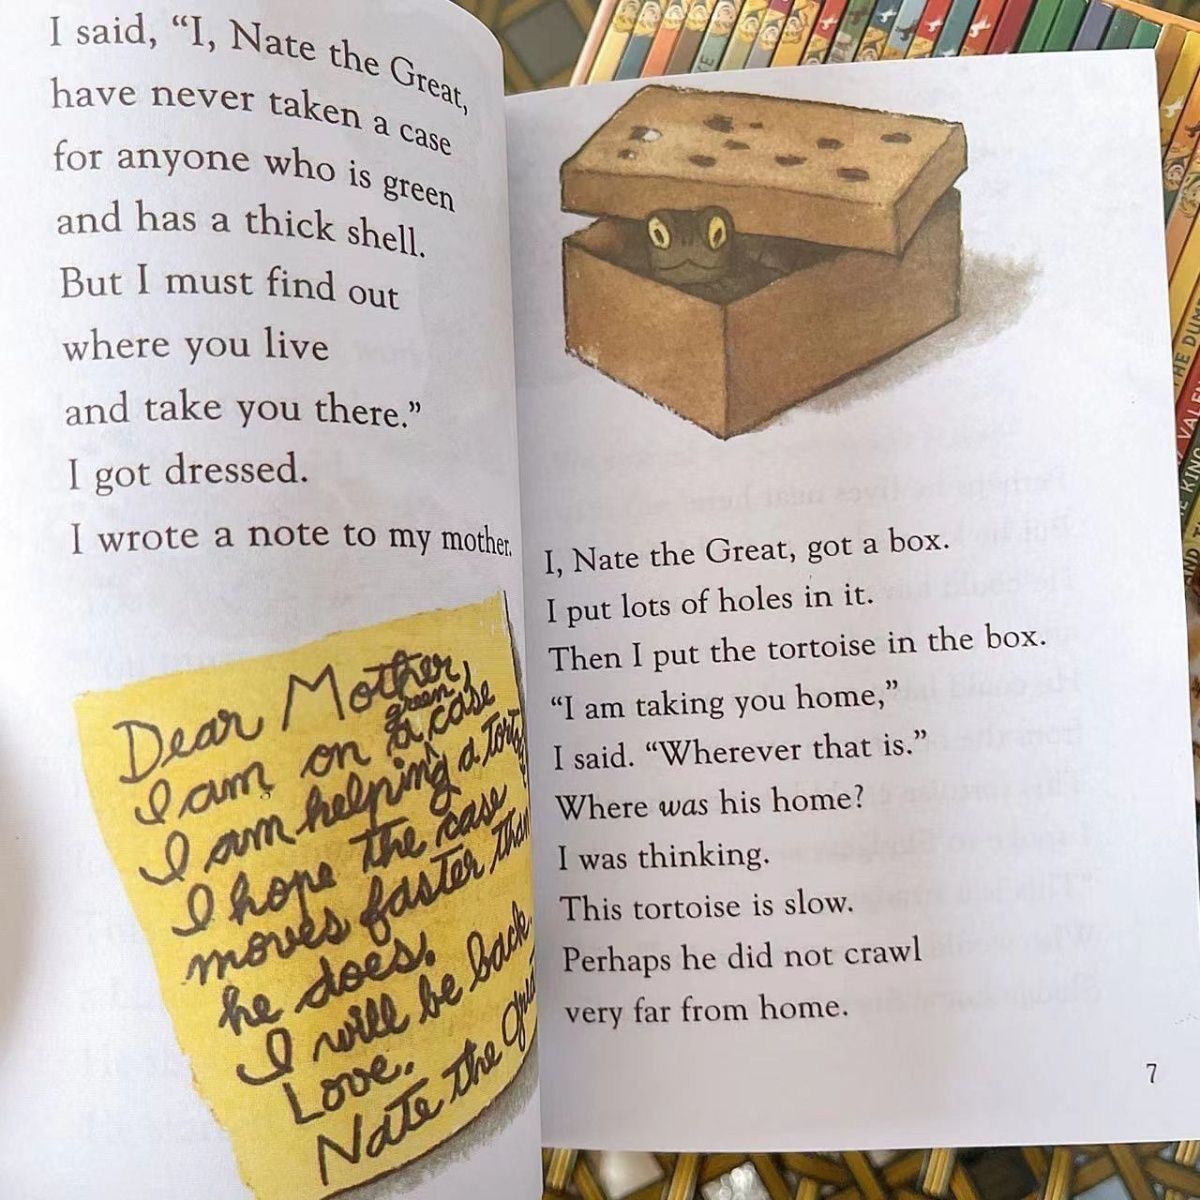 I said, “I, Nate the Great,
have never taken a case
for anyone who is green
and has a thick shell.
But I must find out
where you live
and take you there.”
I got dressed.
I wrote a note to my mother.
Dear Mother,
I am on a green case
I am helping a
I hope the case
moves faster than
he does.
I will be back.
Love.
Nate the
I, Nate the Great, got a box.
I put lots of holes in it.
Then I put the tortoise in the box.
“I am taking you home,”
I said. “Wherever that is.”
Where was his home?
I was thinking.
This tortoise is slow.
Perhaps he did not crawl
very far from home.
7
THE
KING
AND